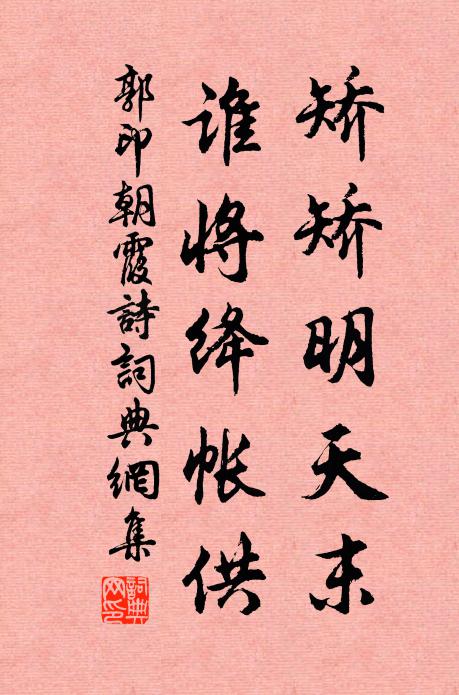 矫矫明天末
谁将绛帐供
郭印朝霞詩詞典網集
詞典网印